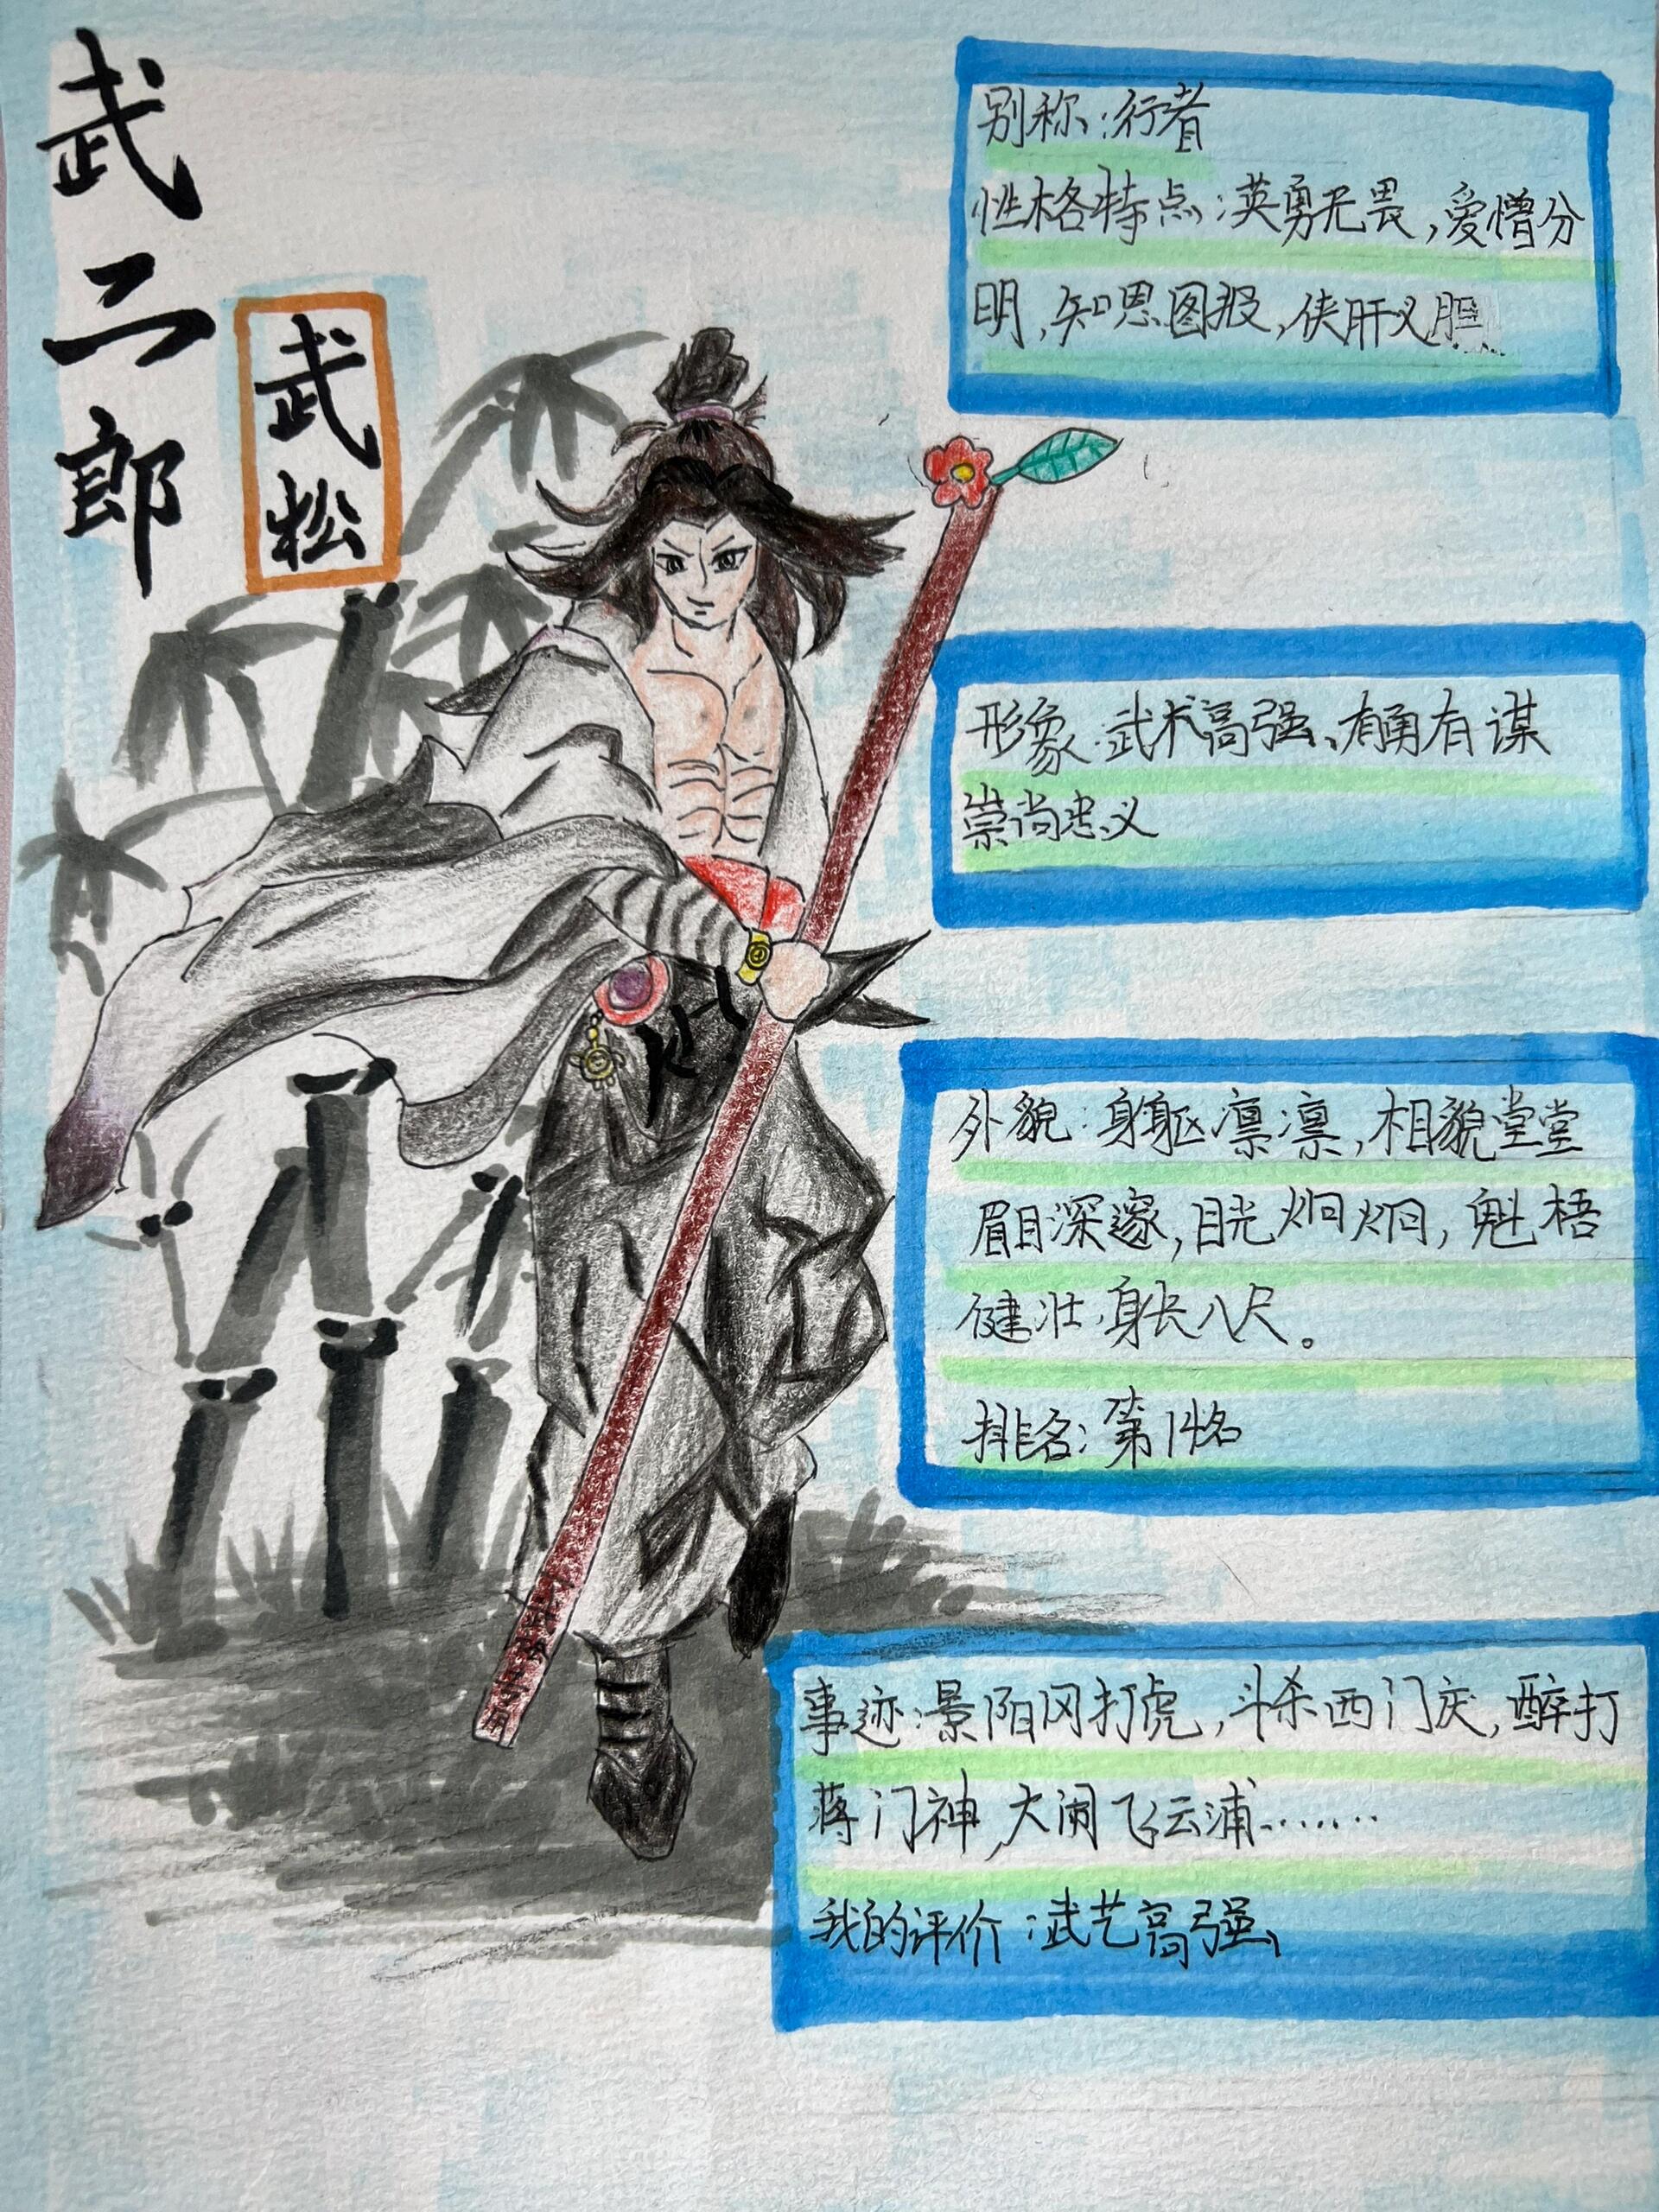 武二郎
武松
别称:行者
性格特点:英勇无畏,爱憎分
明,知恩图报,侠肝义胆
形象:武术高强、有勇有谋
崇尚忠义
外貌:身躯凛凛,相貌堂堂
眉目深邃,目光炯炯,魁梧
健壮,身长八尺。
排名:第14名
事迹:景阳冈打虎,斗杀西门庆,醉打
蒋门神,大闹飞云浦.......
我的评价:武艺高强、